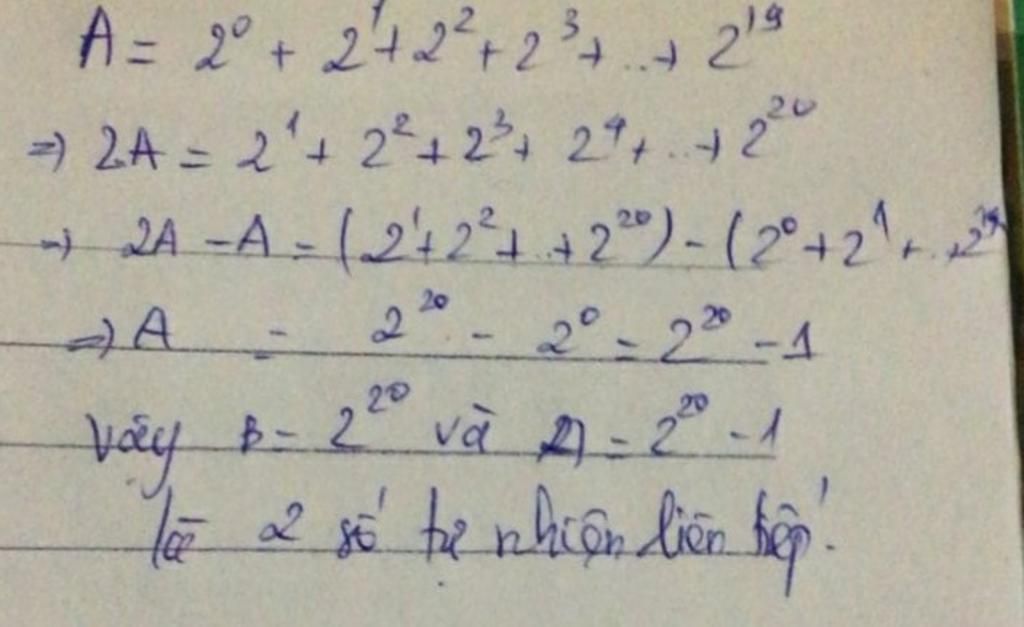 A = 2⁰ + 2¹ + 2² + 2³ + .. + 2¹⁹
=> 2A = 2¹ + 2² + 2³ + 2⁴ + .. + 2²⁰
=> 2A - A = (2¹ + 2² + .. + 2²⁰) - (2⁰ + 2¹ + .. + 2¹⁹
=> A = 2²⁰ - 2⁰ = 2²⁰ - 1
Vậy B = 2²⁰ và = 2²⁰ - 1
là 2 số tự nhiên liên tiếp.